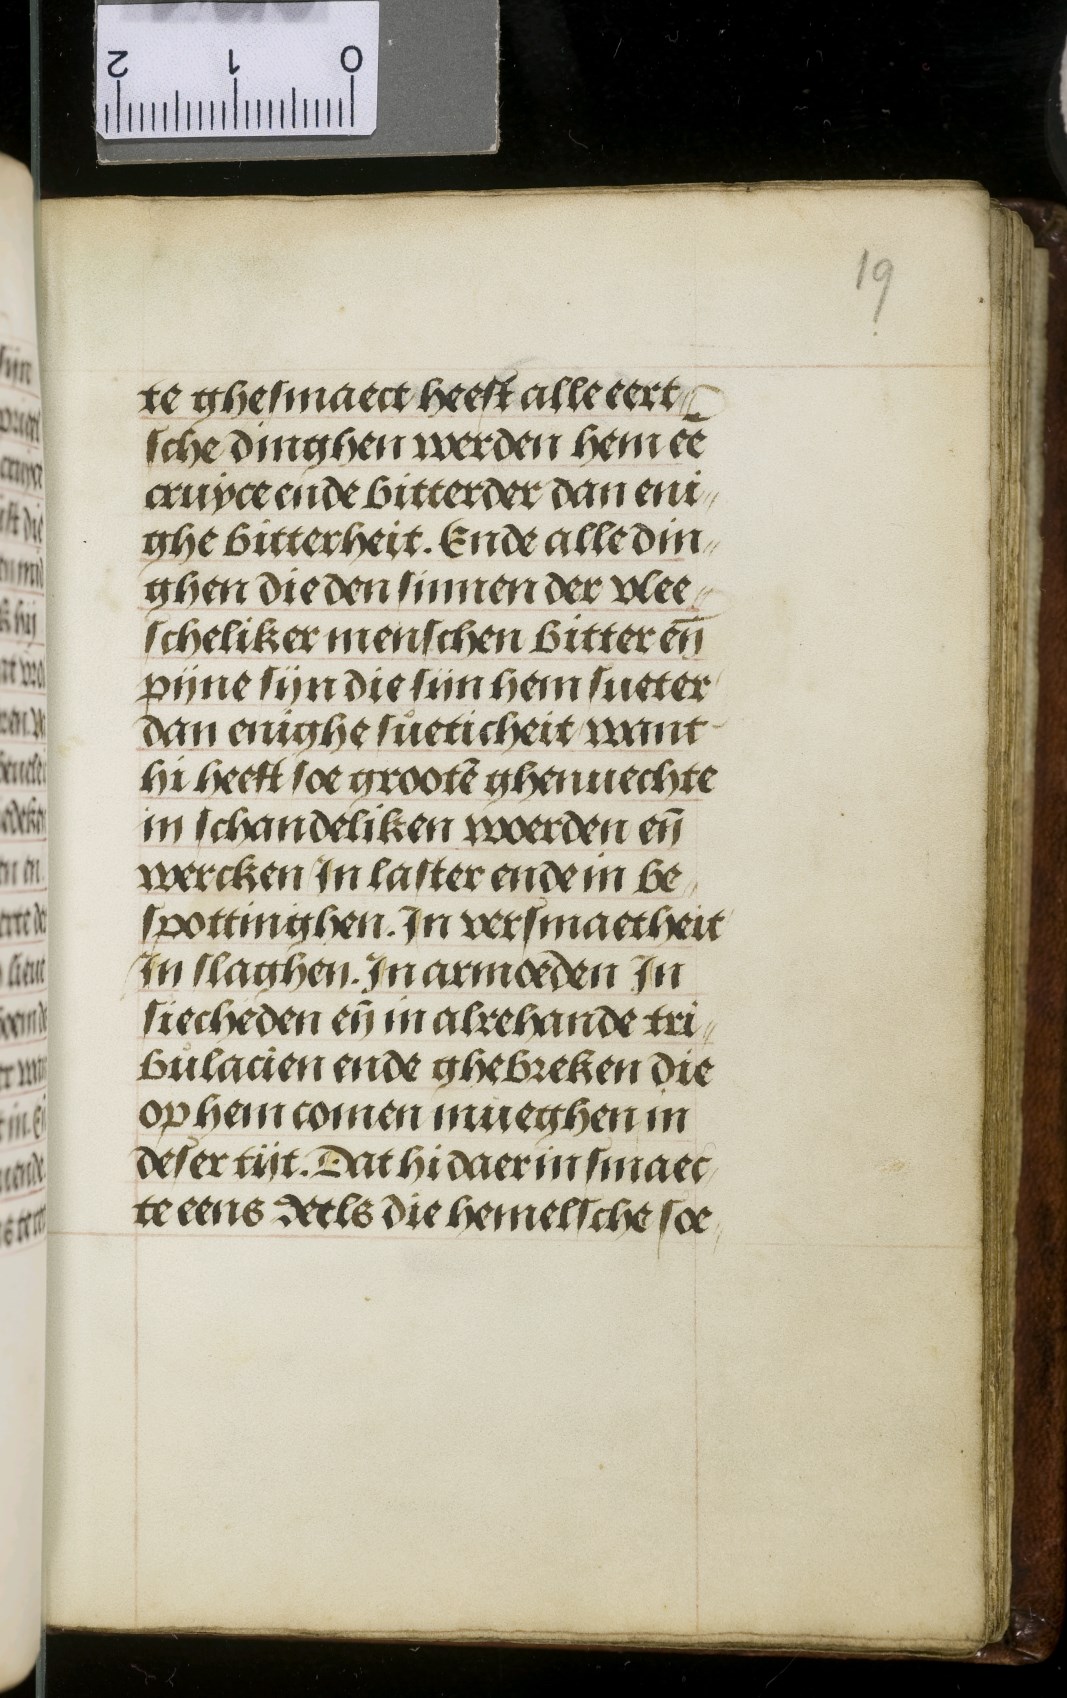 2 1 0
19
te ghesmaect heeft alle eert⸗
sche dinghen werden hem eē
cruyce ende bitterder dan eni⸗
ghe bitterheit. Ende alle din⸗
ghen die den sinnen der vlee⸗
scheliker menschen bitter eñ
pijne sijn die sijn hem sueter
dan enighe sueticheit want
hi heeft soe grootē ghenuechte
in schandeliken woerden eñ
wercken In laster ende in be⸗
spottinghen. In versmaetheit
In slaghen. In armoeden In
siecheden eñ in alrehande tri⸗
bulacien ende ghebreken die
op hem comen mueghen in
deser tijt. Dat hi daer in smaec⸗
te eens deels die hemelsche soe⸗